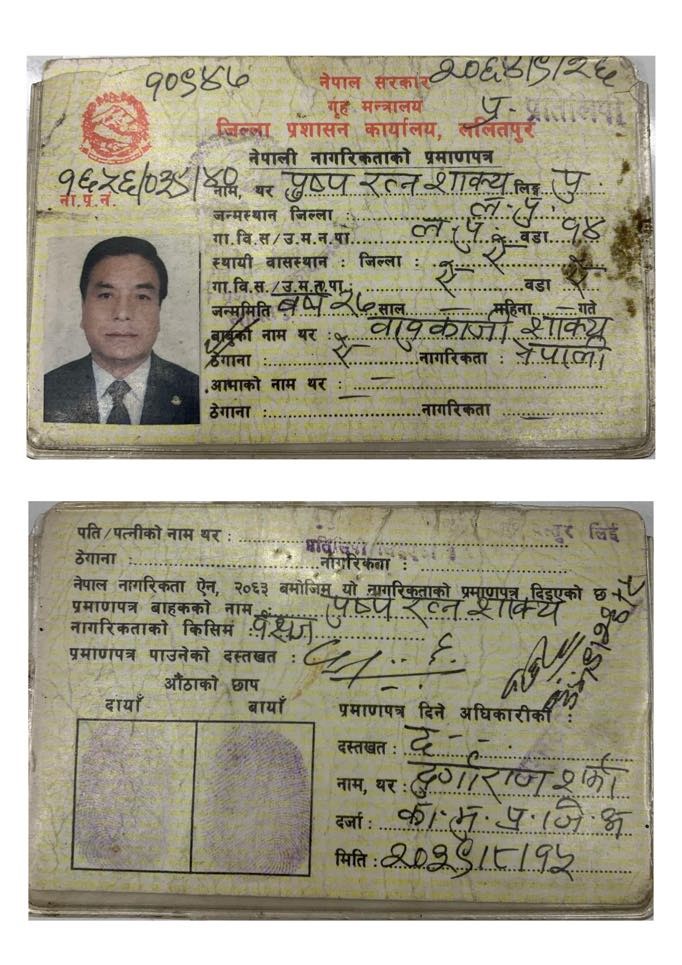 १०९४७ नेपाल सरकार २०६४/९/२६
गृह मन्त्रालय प्र. प्रतिलिपी
जिल्ला प्रशासन कार्यालय, ललितपुर
नेपाली नागरिकताको प्रमाणपत्र
ना.प्र.नं.
नाम, थर पुष्प रत्न शाक्य लिङ्ग पु.
जन्मस्थान जिल्ला : ल.पु.
गा.वि.स/उ.म.न.पा. ल.पु. वडा १४
स्थायी वासस्थान : जिल्ला : ऐ
गा.वि.स./उ.म.न.पा: ऐ वडा ऐ
जन्ममिति वर्ष २७ साल — महिना — गते
बाबुको नाम थर : वावुकाजी शाक्य
ठेगाना : ऐ नागरिकता : नेपाली
आमाको नाम थर :
ठेगाना : नागरिकता
पति/पत्नीको नाम थर :
ठेगाना : नागरिकता :
नेपाल नागरिकता ऐन, २०६३ बमोजिम यो नागरिकताको प्रमाणपत्र दिइएको छ
प्रमाणपत्र बाहकको नाम : पुष्प रत्न शाक्य
नागरिकताको किसिम : वंशज
प्रमाणपत्र पाउनेको दस्तखत :
औंठाको छाप
दायाँ बायाँ
प्रमाणपत्र दिने अधिकारीको :
दस्तखत : द - - .
नाम, थर : दुर्गाराज शर्मा
दर्जा : का.मु.प्र.जि.अ
मिति : २०३९/८/१५